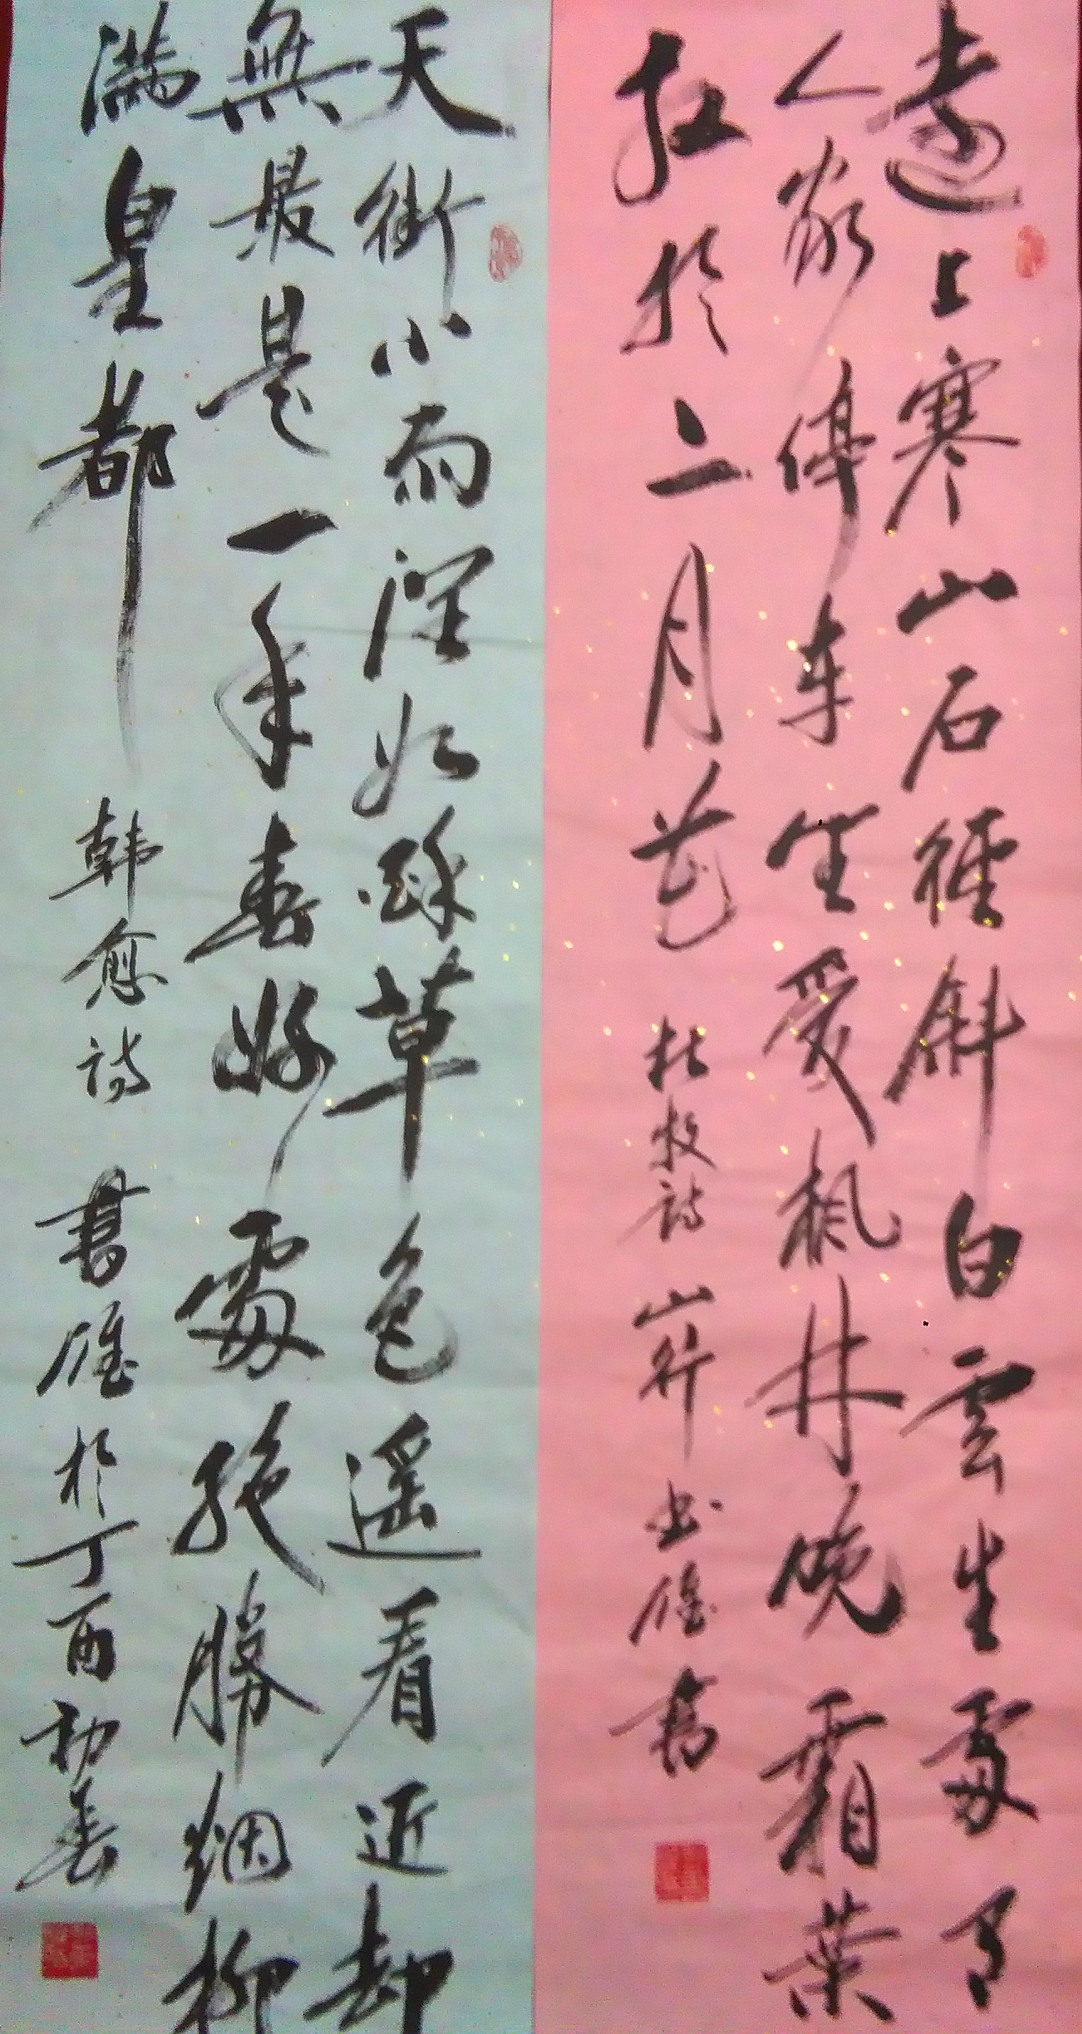 遠上寒山石徑斜白雲生處有
人家停車坐愛楓林晚霜葉
紅於二月花 杜牧詩 山行 書雄書
天街小雨潤如酥草色遙看近却
無最是一年春好處絕勝烟柳
滿皇都 韓愈詩 書雄於丁酉初春